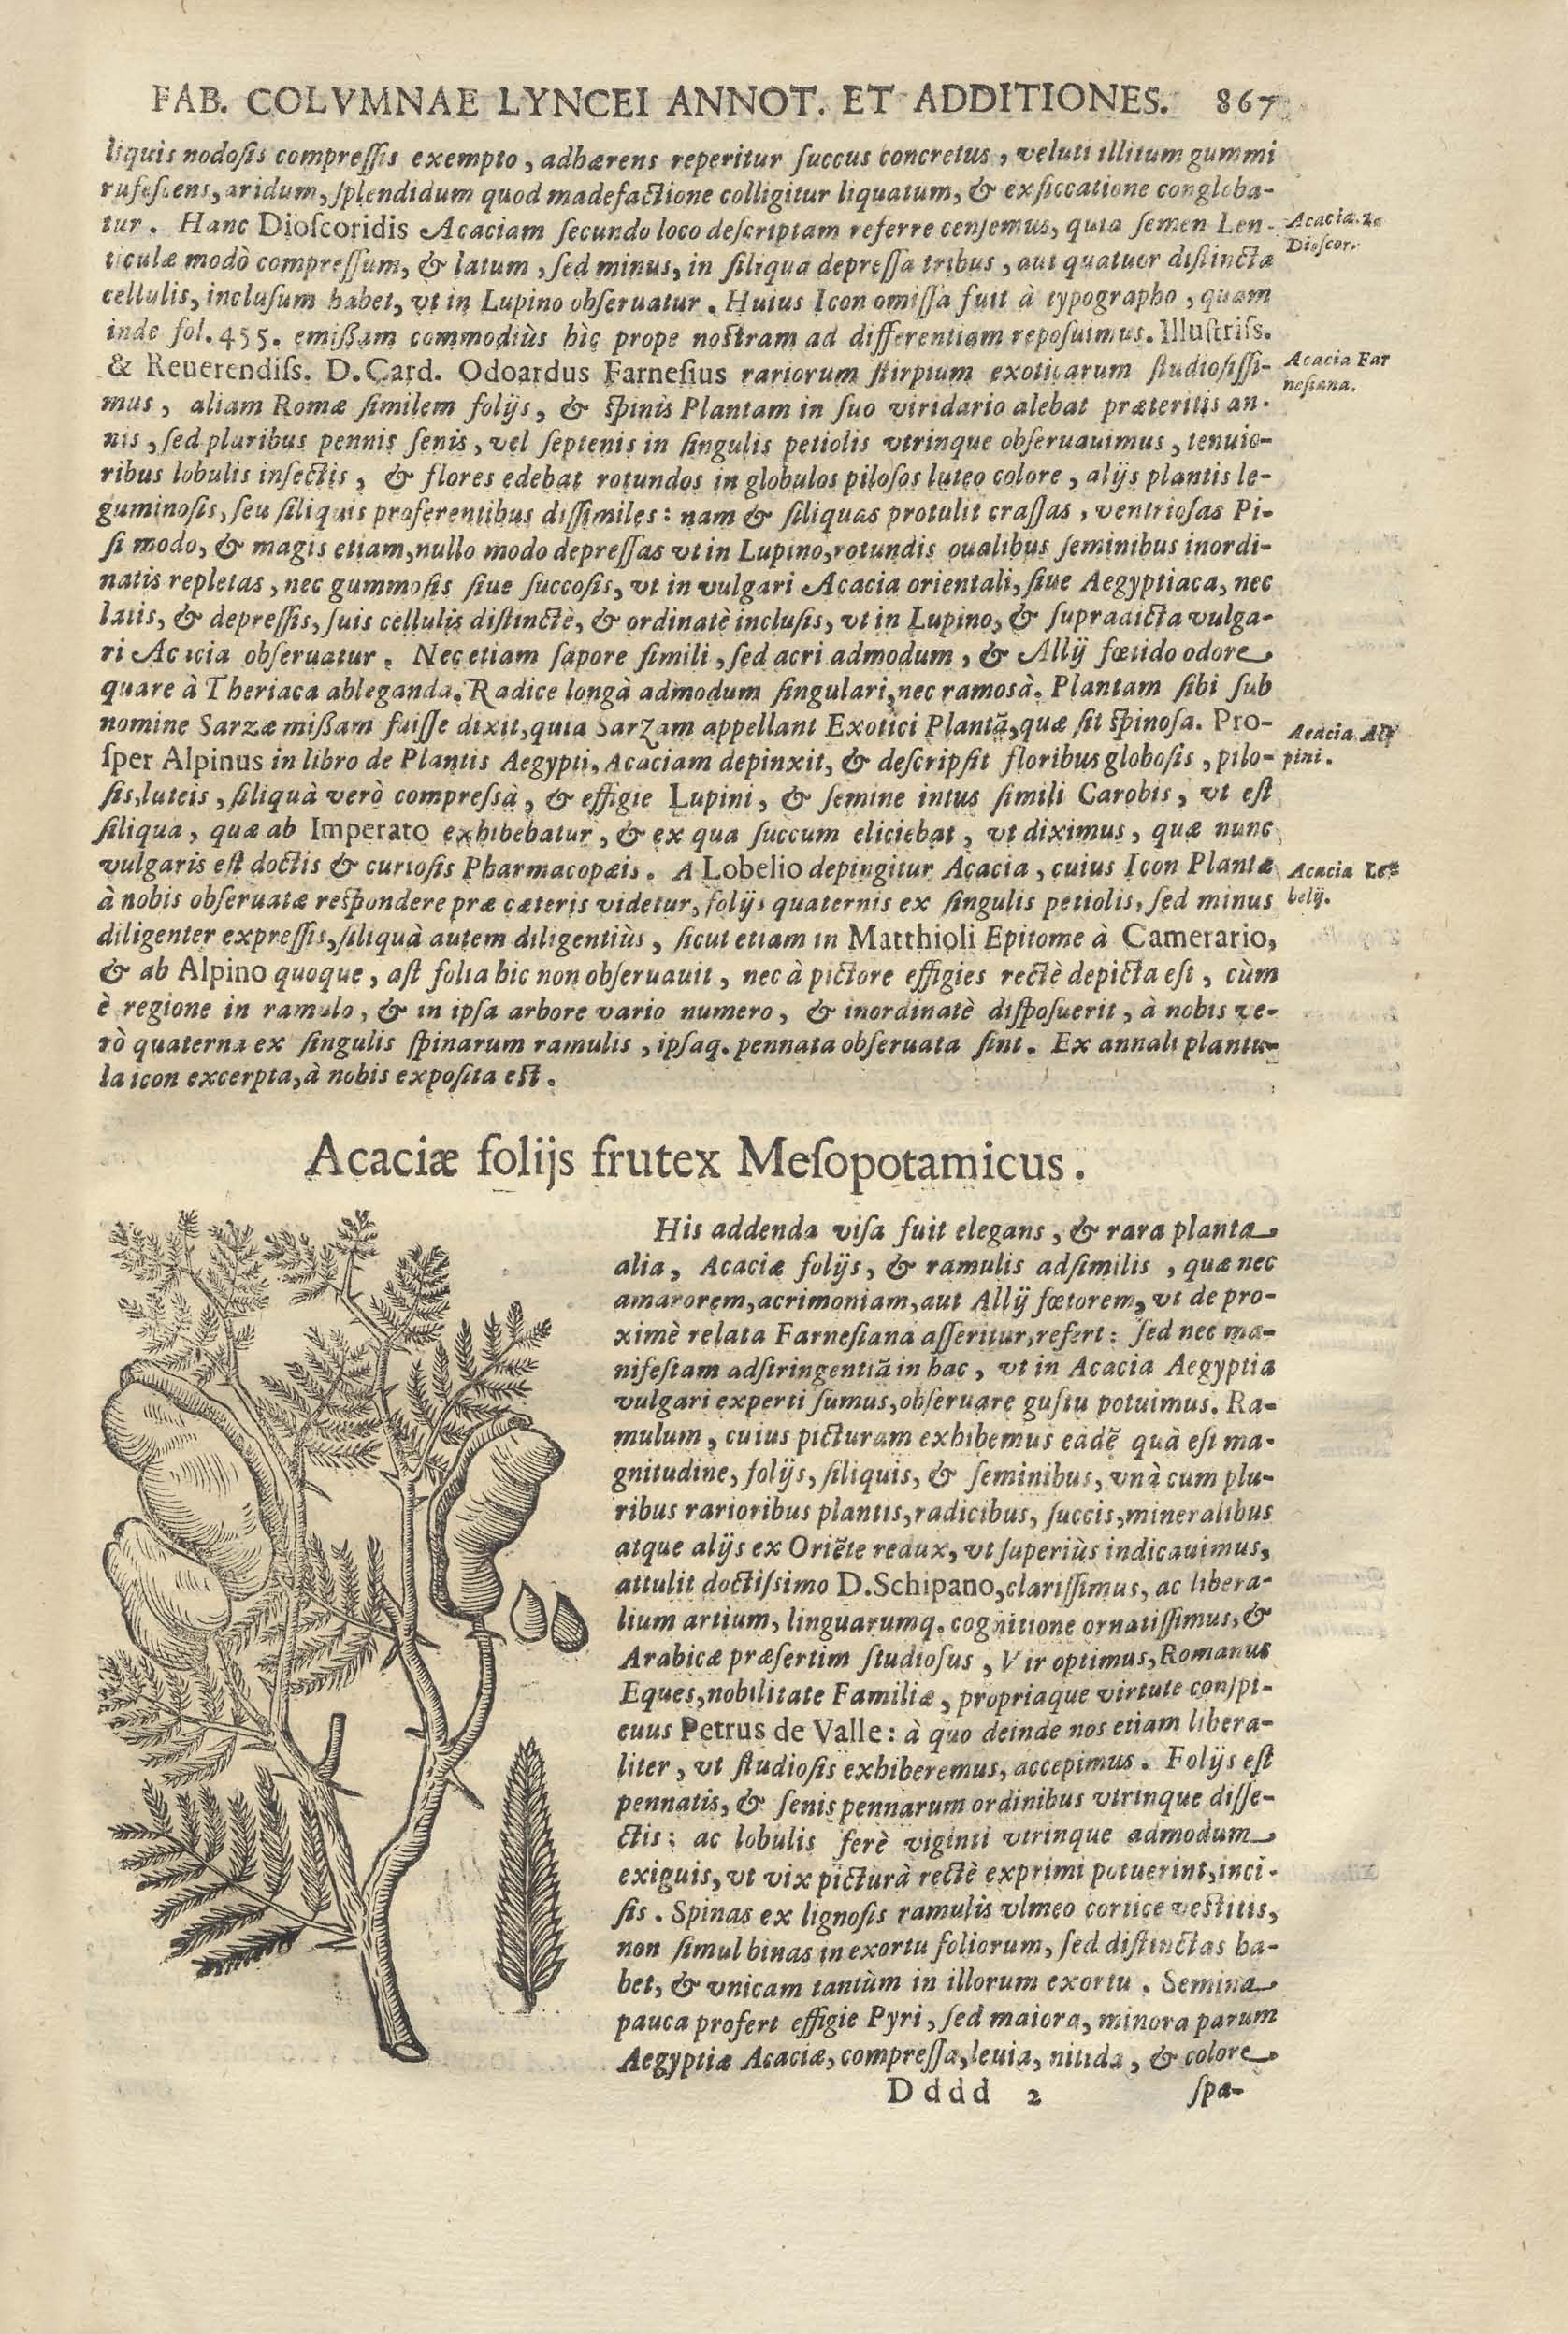 FAB. COLVMNAE LYNCEI ANNOT. ET ADDITIONES. 867
liquis nodoſis compreſſis exempto, adhærens reperitur ſuccus concretus, veluti illitum gummi
rufeſcens, aridum, ſplendidum quod madefactione colligitur liquatum, & exſiccatione congloba-
tur. Hanc Dioſcoridis Acaciam ſecundo loco deſcriptam referre cenſemus, quia ſemen Len-
Acacia. 2.
Dioſcor.
ticulæ modò compreſſum, & latum, ſed minus, in ſiliqua depreſſa tribus, aut quatuor diſtincta
cellulis, incluſum habet, vt in Lupino obſeruatur. Huius Icon omiſſa fuit à typographo, quam
inde fol. 455. emiſſam commodiùs hìc prope noſtram ad differentiam repoſuimus. Illuſtriſs.
& Reuerendiſs. D. Card. Odoardus Farneſius rariorum ſtirpium exoticarum ſtudioſiſſi-
Acacia Far
neſiana.
mus, aliam Romæ ſimilem folijs, & ſpinis Plantam in ſuo viridario alebat præteritis an-
nis, ſed pluribus pennis ſenis, vel ſeptenis in ſingulis petiolis vtrinque obſeruauimus, tenuio-
ribus lobulis inſectis, & flores edebat rotundos in globulos piloſos luteo colore, alijs plantis le-
guminoſis, ſeu ſiliquis proferentibus diſſimiles: nam & ſiliquas protulit craſſas, ventrioſas Pi-
ſi modo, & magis etiam, nullo modo depreſſas vt in Lupino, rotundis oualibus ſeminibus inordi-
natis repletas, nec gummoſis ſiue ſuccoſis, vt in vulgari Acacia orientali, ſiue Aegyptiaca, nec
latis, & depreſſis, ſuis cellulis diſtinctè, & ordinatè incluſis, vt in Lupino, & ſupradicta vulga-
ri Acacia obſeruatur. Nec etiam ſapore ſimili, ſed acri admodum, & Allij fœtido odore
quare à Theriaca ableganda. Radice longà admodum ſingulari, nec ramosà. Plantam ſibi ſub
nomine Sarzæ mißam fuiſſe dixit, quia Sarzam appellant Exotici Plantã, quæ ſit ſpinoſa. Pro-
ſper Alpinus in libro de Plantis Aegypti, Acaciam depinxit, & deſcripſit floribus globoſis, pilo-
Acacia Al
pini.
ſis, luteis, ſiliquà verò compreſsà, & effigie Lupini, & ſemine intus ſimili Carobis, vt eſt
ſiliqua, quæ ab Imperato exhibebatur, & ex qua ſuccum eliciebat, vt diximus, quæ nunc
vulgaris eſt doctis & curioſis Pharmacopæis. A Lobelio depingitur Acacia, cuius Icon Plantæ
Acacia Lo
belij.
à nobis obſeruatæ reſpondere præ cæteris videtur, folijs quaternis ex ſingulis petiolis, ſed minus
diligenter expreſſis, ſiliquà autem diligentiùs, ſicut etiam in Matthioli Epitome à Camerario,
& ab Alpino quoque, aſt folia hic non obſeruauit, nec à pictore effigies rectè depicta eſt, cùm
è regione in ramulo, & in ipſa arbore vario numero, & inordinatè diſpoſuerit, à nobis ve-
rò quaterna ex ſingulis ſpinarum ramulis, ipſaq. pennata obſeruata ſint. Ex annali plantu-
la icon excerpta, à nobis expoſita eſt.
Acaciæ folijs frutex Meſopotamicus.
His addenda viſa fuit elegans, & rara planta
alia, Acaciæ folijs, & ramulis adſimilis, quæ nec
amarorem, acrimoniam, aut Allij fœtorem, vt de pro-
ximè relata Farneſiana aſſeritur, refert: ſed nec ma-
nifeſtam adſtringentiã in hac, vt in Acacia Aegyptia
vulgari experti ſumus, obſeruare guſtu potuimus. Ra-
mulum, cuius picturam exhibemus eàdẽ quà eſt ma-
gnitudine, folijs, ſiliquis, & ſeminibus, vnà cum plu-
ribus rarioribus plantis, radicibus, ſuccis, mineralibus
atque alijs ex Oriẽte redux, vt ſuperiùs indicauimus,
attulit doctiſsimo D. Schipano, clariſſimus, ac libera-
lium artium, linguarumq. cognitione ornatiſſimus, &
Arabicæ præſertim ſtudioſus, Vir optimus, Romanus
Eques, nobilitate Familiæ, propriaque virtute conſpi-
cuus Petrus de Valle: à quo deinde nos etiam libera-
liter, vt ſtudioſis exhiberemus, accepimus. Folijs eſt
pennatis, & ſenis pennarum ordinibus vtrinque diſſe-
ctis: ac lobulis ferè viginti vtrinque admodum
exiguis, vt vix picturà rectè exprimi potuerint, inci-
ſis. Spinas ex lignoſis ramulis vlmeo cortice veſtitis,
non ſimul binas in exortu foliorum, ſed diſtinctas ha-
bet, & vnicam tantùm in illorum exortu. Semina
pauca profert effigie Pyri, ſed maiora, minora parum
Aegyptiæ Acaciæ, compreſſa, leuia, nitida, & colore
Dddd 2 ſpa-